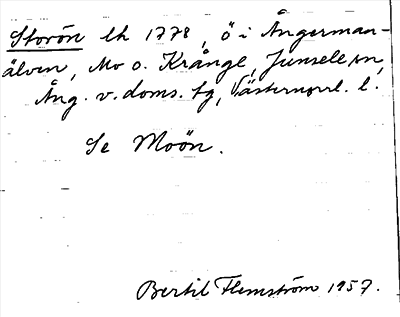 Storön lh 1778, ö i Ångerman-
älven, Mo o. Krånge, Junsele sn,
Ång. v. doms. tg, Västernorrl. l.
Se Moön.
Bertil Flemström 1957.